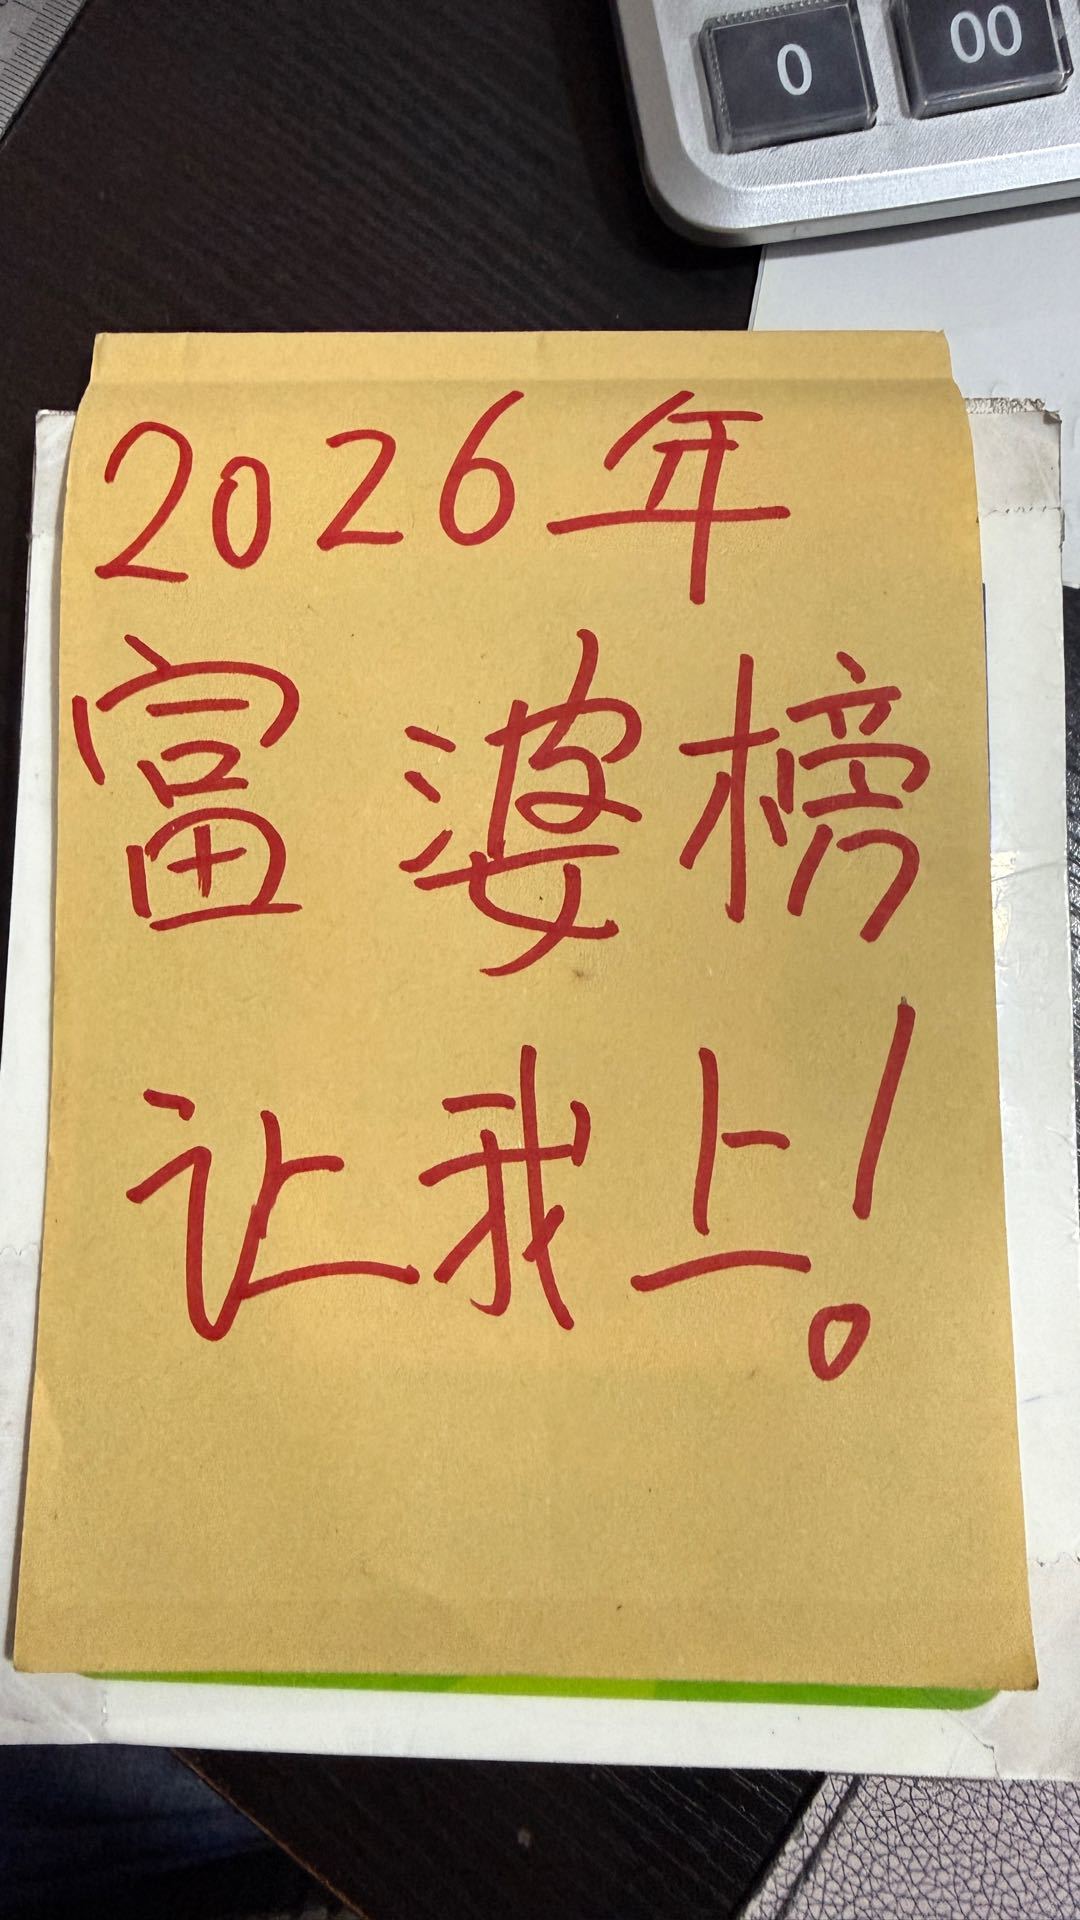 0 00
2026年
富婆榜
让我上!